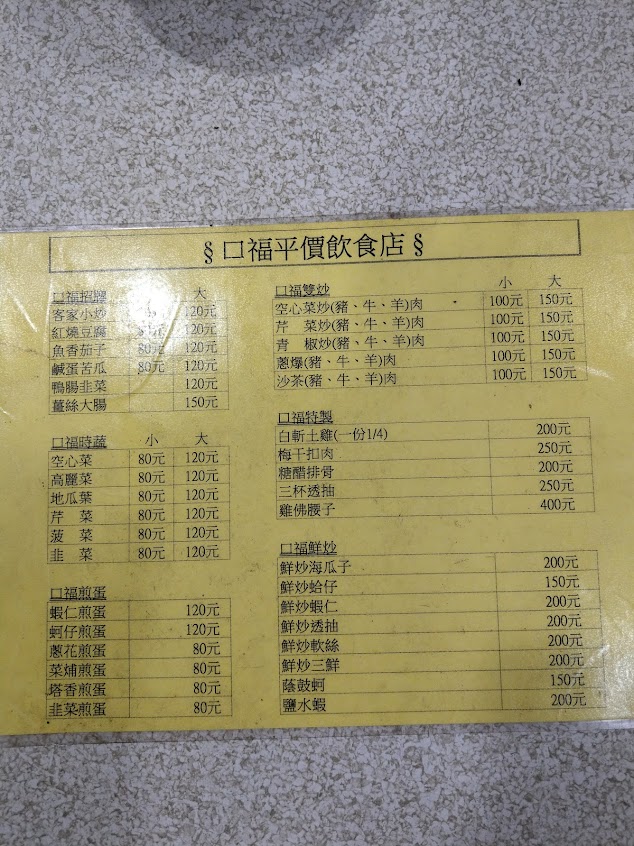 §口福平價飲食店§
口福招牌 大
客家小炒 120元
紅燒豆腐 80元 120元
魚香茄子 80元 120元
鹹蛋苦瓜 80元 120元
鴨腸韭菜 120元
薑絲大腸 150元
口福時蔬 小 大
空心菜 80元 120元
高麗菜 80元 120元
地瓜葉 80元 120元
芹 菜 80元 120元
菠 菜 80元 120元
韭 菜 80元 120元
口福煎蛋
蝦仁煎蛋 120元
蚵仔煎蛋 120元
蔥花煎蛋 80元
菜脯煎蛋 80元
塔香煎蛋 80元
韭菜煎蛋 80元
口福雙炒 小 大
空心菜炒(豬、牛、羊)肉 100元 150元
芹 菜炒(豬、牛、羊)肉 100元 150元
青 椒炒(豬、牛、羊)肉 100元 150元
蔥爆(豬、牛、羊)肉 100元 150元
沙茶(豬、牛、羊)肉 100元 150元
口福特製
白斬土雞(一份1/4) 200元
梅干扣肉 250元
糖醋排骨 200元
三杯透抽 250元
雞佛腰子 400元
口福鮮炒
鮮炒海瓜子 200元
鮮炒蛤仔 150元
鮮炒蝦仁 200元
鮮炒透抽 200元
鮮炒軟絲 200元
鮮炒三鮮 200元
蔭鼓蚵 150元
鹽水蝦 200元